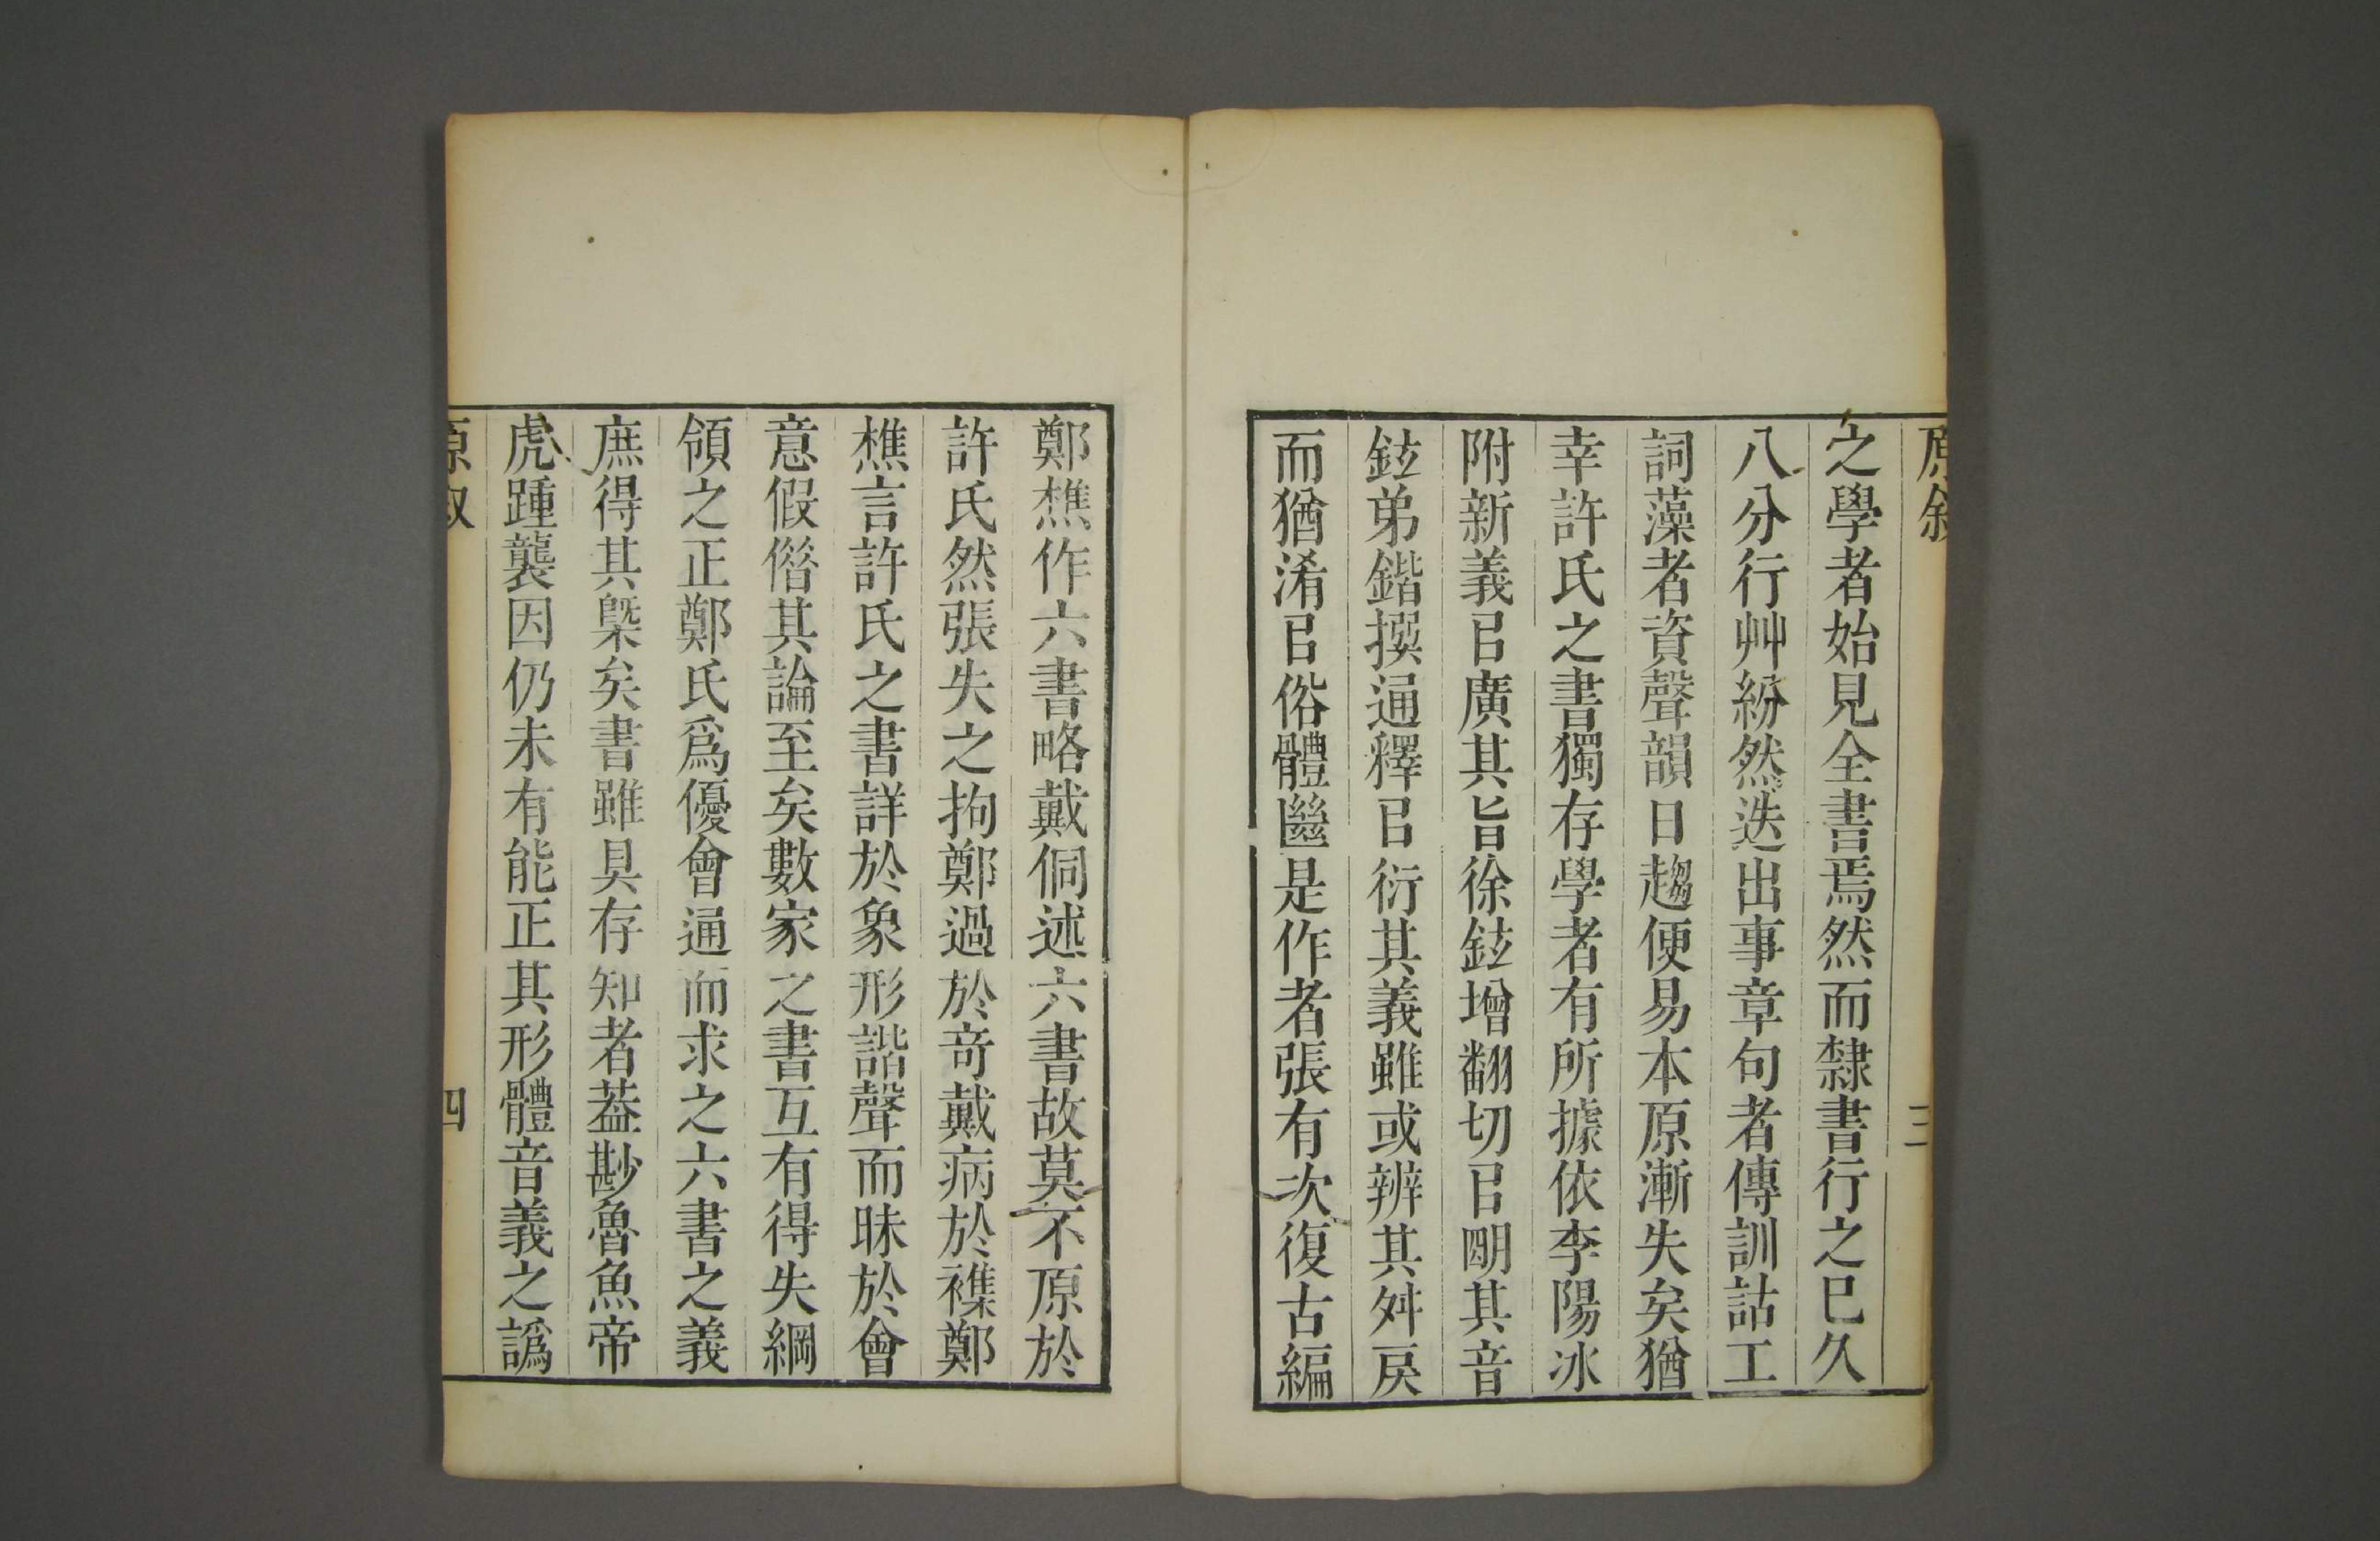 原敘
三
之學者始見全書焉然而隸書行之巳久
八分行艸紛然迭出事章句者傳訓詁工
詞藻者資聲韻日趨便易本原漸失矣猶
幸許氏之書獨存學者有所據依李陽冰
附新義㠯廣其旨徐鉉增翻切㠯朙其音
鉉弟鍇撰通釋㠯衍其義雖或辨其舛戾
而猶淆㠯俗體㘒是作者張有次復古編
鄭樵作六書略戴侗述六書故莫不原於
許氏然張失之拘鄭過於竒戴病於襍鄭
樵言許氏之書詳於象形諧聲而昧於會
意假偺其論至矣數家之書互有得失綱
領之正鄭氏爲優會通而求之六書之義
庶得其槩矣書雖具存知者葢尠魯魚帝
虎踵襲因仍未有能正其形體音義之譌
原敘
四